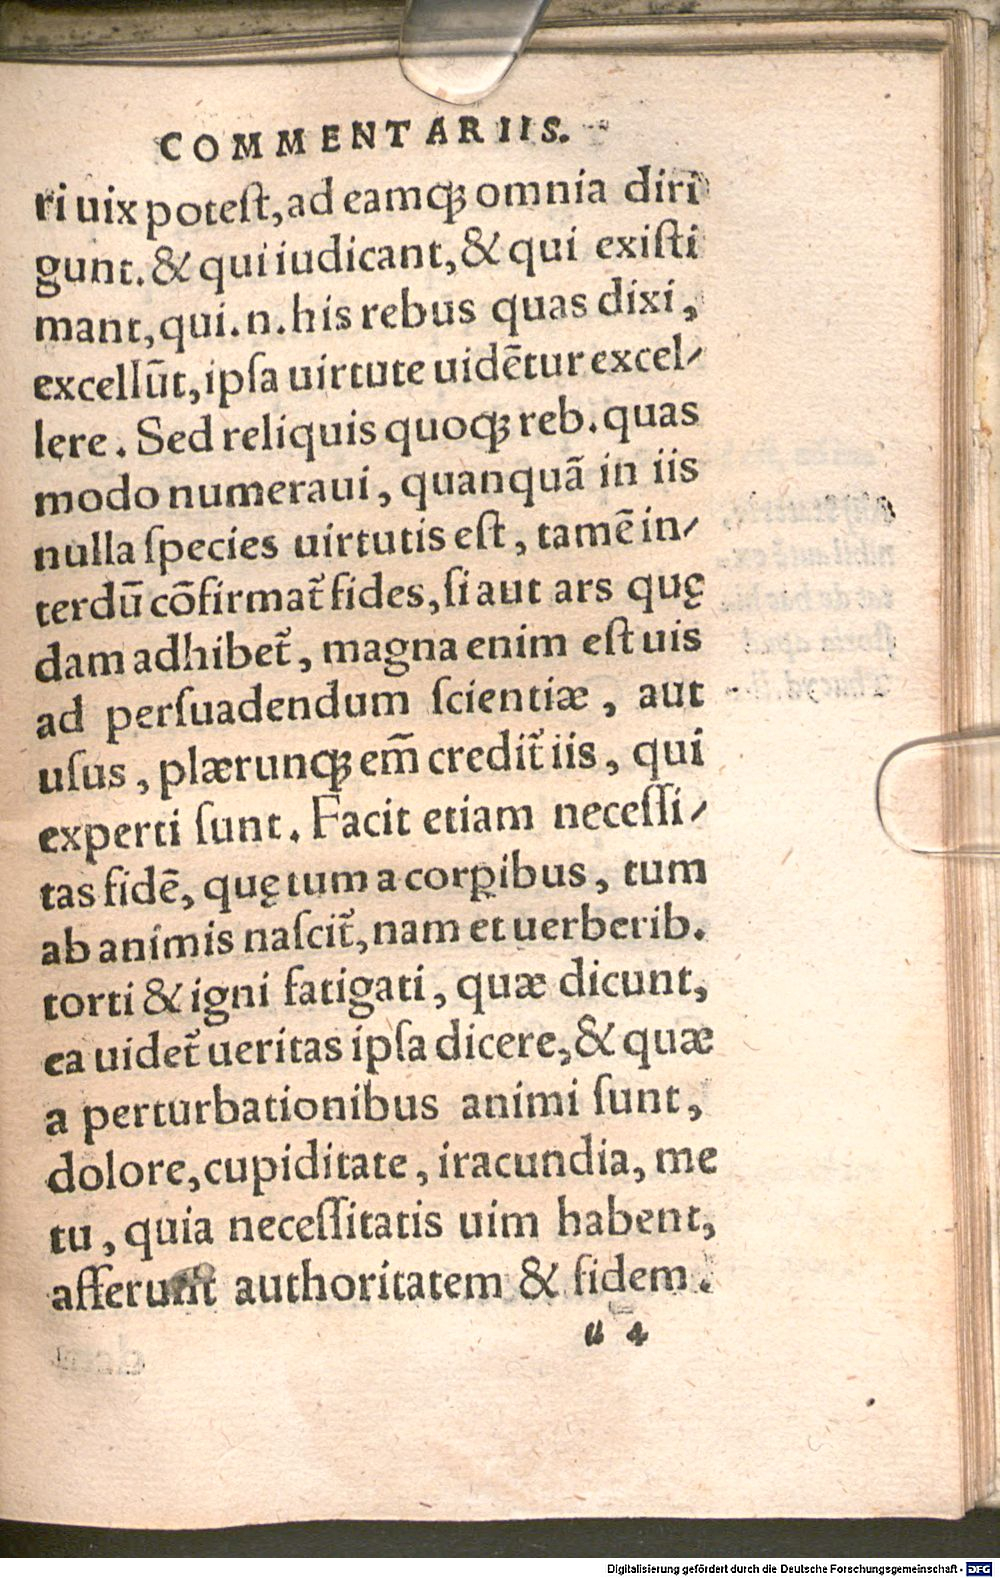 COMMENTARIIS.
ri uix potest, ad eamq; omnia diri
gunt. & qui iudicant, & qui existi
mant, qui .n. his rebus quas dixi,
excellūt, ipsa uirtute uidētur excel-
lere. Sed reliquis quoq; reb. quas
modo numeraui, quanquā in iis
nulla species uirtutis est, tamē in-
terdū cōfirmat᷑ fides, si aut ars quę
dam adhibet᷑, magna enim est uis
ad persuadendum scientiæ, aut
usus, plærunq; em̄ credit᷑ iis, qui
experti sunt. Facit etiam necessi-
tas fidē, quę tum a corꝑibus, tum
ab animis nascit᷑, nam et uerberib.
torti & igni fatigati, quæ dicunt,
ea uidet᷑ ueritas ipsa dicere, & quæ
a perturbationibus animi sunt,
dolore, cupiditate, iracundia, me
tu, quia necessitatis uim habent,
afferunt authoritatem & fidem.
u 4
Digitalisierung gefördert durch die Deutsche Forschungsgemeinschaft - DFG